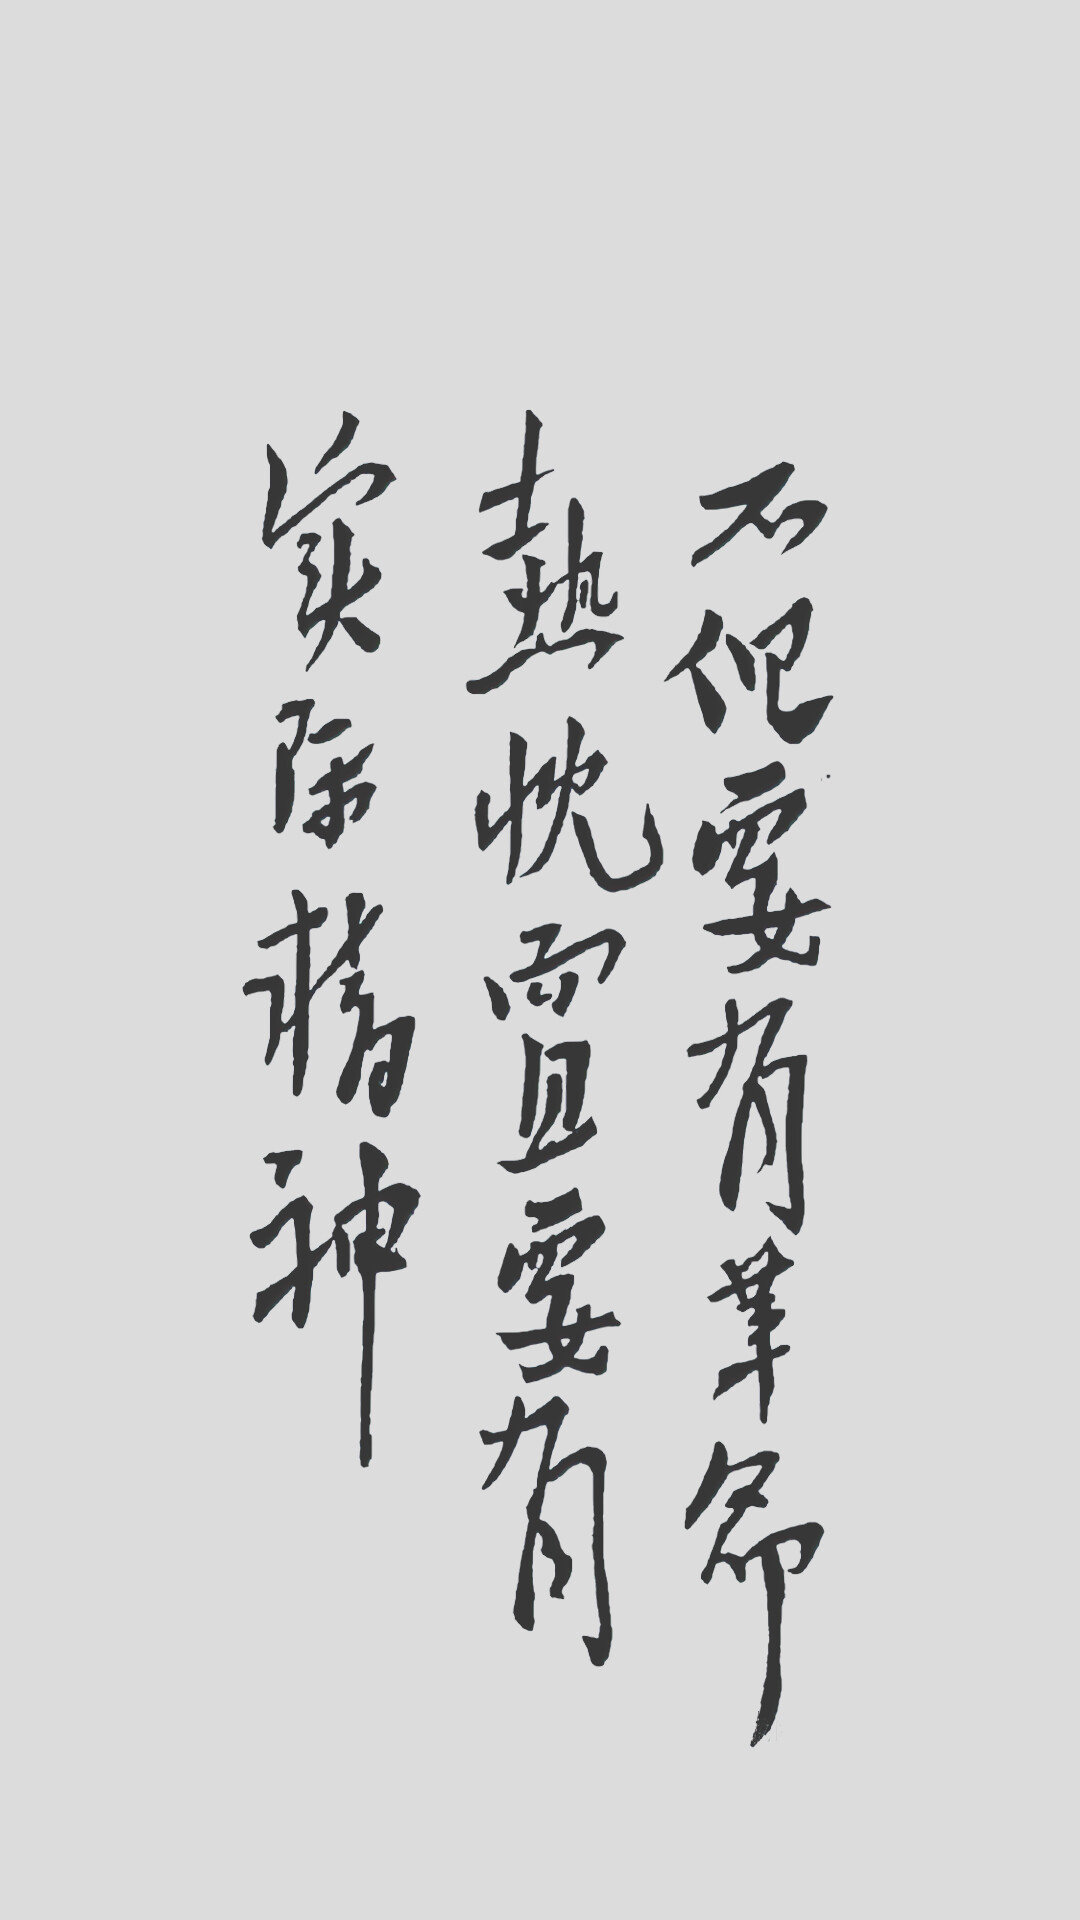 不但要有革命
熱忱而且要有
实际精神